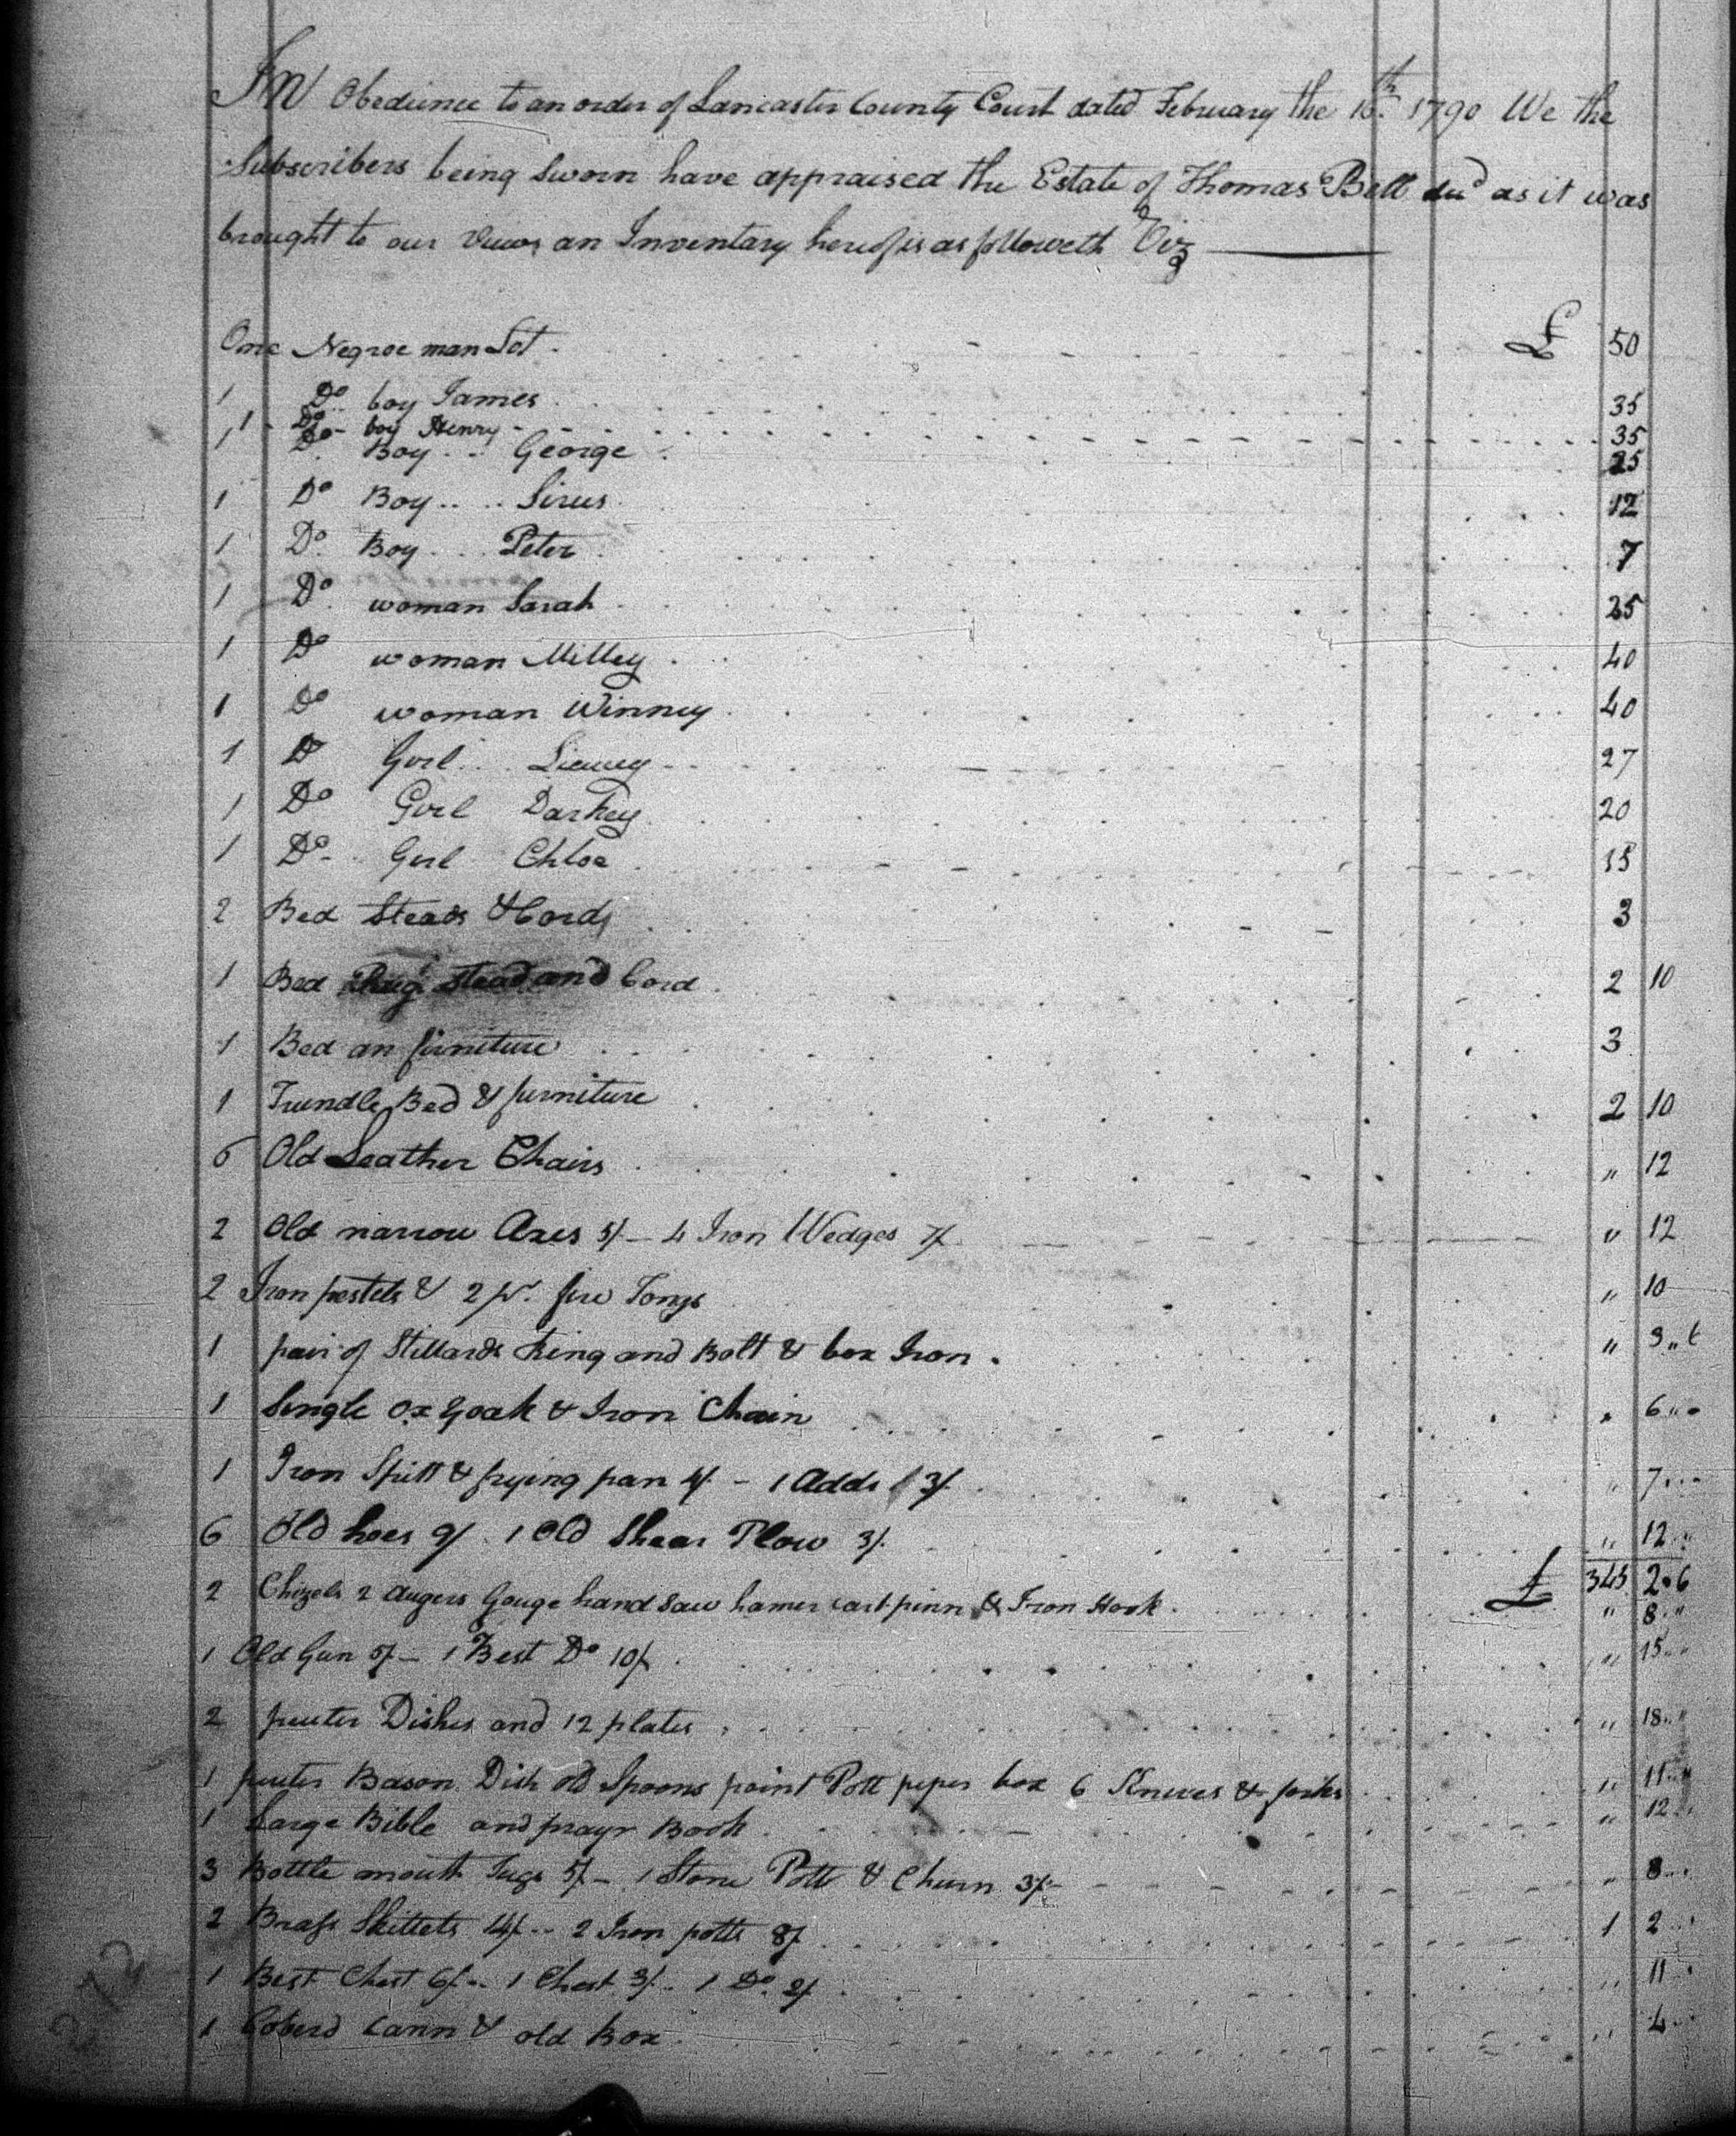 In Obedience to an order of Lancaster County Court dated February the 16th 1790 We the
Subscribers being Sworn have appraised the Estate of Thomas Bell decd as it was
brought to our View, an Inventary hereof is as followeth Viz
One Negroe man Lot £ 50
1 Do boy James 35
1 Do boy Henry 35
1 Do Boy George 25
1 Do Boy Sirus 12
1 Do Boy Peter 7
1 Do woman Sarah 25
1 Do woman Milley 40
1 Do woman Winney 40
1 Do Girl 27
1 Do Girl Darkey 20
1 Do Girl Chloe 15
2 Bed Steads & Cords 3
1 Bed Rug Stead and Cord 2 10
1 Bed an furniture 3
1 Trundle Bed & furniture 2 10
6 Old Leather Chairs " 12
2 Old narrow Axes 5/ - 4 Iron Wedges 7/ " 12
2 Iron pestels & 2 pr. fire Tongs " 10
1 pair of Stillards Ring and Bolt & box Iron " 9 " 6
1 Single Ox Yoak & Iron Chain " 6 " "
1 Iron Spitt & frying pan 4/ - 1 Adds 3/ " 7 "
6 Old hoes 9/ 1 Old Shear Plow 3/ " 12 "
£ 345 2 " 6
2 Chizels 2 Augers Gouge hand Saw hamer cart pinn & Iron Hook " 8 "
1 Old Gun 5/ - 1 Best Do 10/ " 15 "
2 peuter Dishes and 12 plates " 18 "
1 peuter Bason Dish old Spoons paint Pott peper box 6 Knives & forks " 11 "
1 Large Bible and prayr Book " 12 "
3 Bottle mouth Jugs 5/ - 1 Stone Pott & Churn 3/ " 8 "
2 Brass Skittets 14/ - 2 Iron potts 8/ 1 2 "
1 Best Chest 6/ - 1 Chest 3/ - 1 Do. 2/ " 11 "
1 Coberd Cann & old Box " 4 "
272